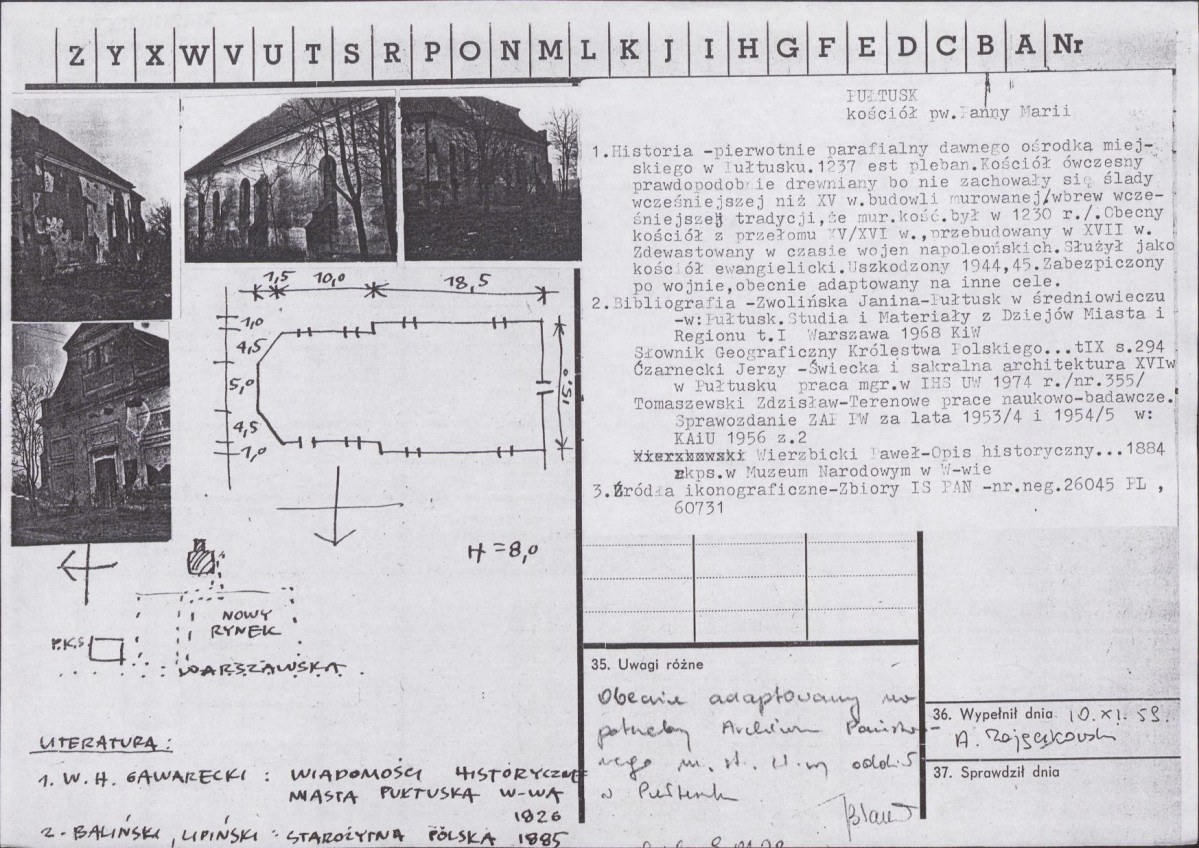 Z Y X W V U T S R P O N M L K J I H G F E D C B A Nr
PUŁTUSK
kościół pw.Panny Marii
1.Historia -pierwotnie parafialny dawnego ośrodka miej-
skiego w Pułtusku.1237 est pleban.Kościół ówczesny
prawdopodobnie drewniany bo nie zachowały się ślady
wcześniejszej niż XV w.budowli murowanej/wbrew wcze-
śniejszej tradycji,że mur.kość.był w 1230 r./.Obecny
kościół z przełomu XV/XVI w.,przebudowany w XVII w.
Zdewastowany w czasie wojen napoleońskich.Służył jako
kościół ewangielicki.Uszkodzony 1944,45.Zabezpiczony
po wojnie,obecnie adaptowany na inne cele.
2.Bibliografia -Zwolińska Janina-Pułtusk w średniowieczu
-w:Pułtusk.Studia i Materiały z Dziejów Miasta i
Regionu t.I Warszawa 1968 KiW
Słownik Geograficzny Królestwa Polskiego...tIX s.294
Czarnecki Jerzy -Świecka i sakralna architektura XVIw
w Pułtusku praca mgr.w IHS UW 1974 r./nr.355/
Tomaszewski Zdzisław-Terenowe prace naukowo-badawcze.
Sprawozdanie ZAP PW za lata 1953/4 i 1954/5 w:
KAiU 1956 z.2
Wierzbicki Paweł-Opis historyczny...1884
rkps.w Muzeum Narodowym w W-wie
3.Źródła ikonograficzne-Zbiory IS PAN -nr.neg.26045 PL ,
60731
1,5 10,0 18,5
1,0
4,5
5,0
4,5
1,0
15,0
H = 8,0
NOWY
RYNEK
P.K.S.
WARSZAWSKA
LITERATURA:
1. W. H. GAWARECKI : WIADOMOŚCI HISTORYCZNE
MIASTA PUŁTUSKA W-WA
1826
2. BALIŃSKI, LIPIŃSKI : STAROŻYTNA POLSKA 1885
35. Uwagi różne
Obecnie adaptowany na
potrzeby Archiwum Państwo-
wego m. st. W-wy oddz.
w Pułtusku
36. Wypełnił dnia 10.XI.59.
37. Sprawdził dnia